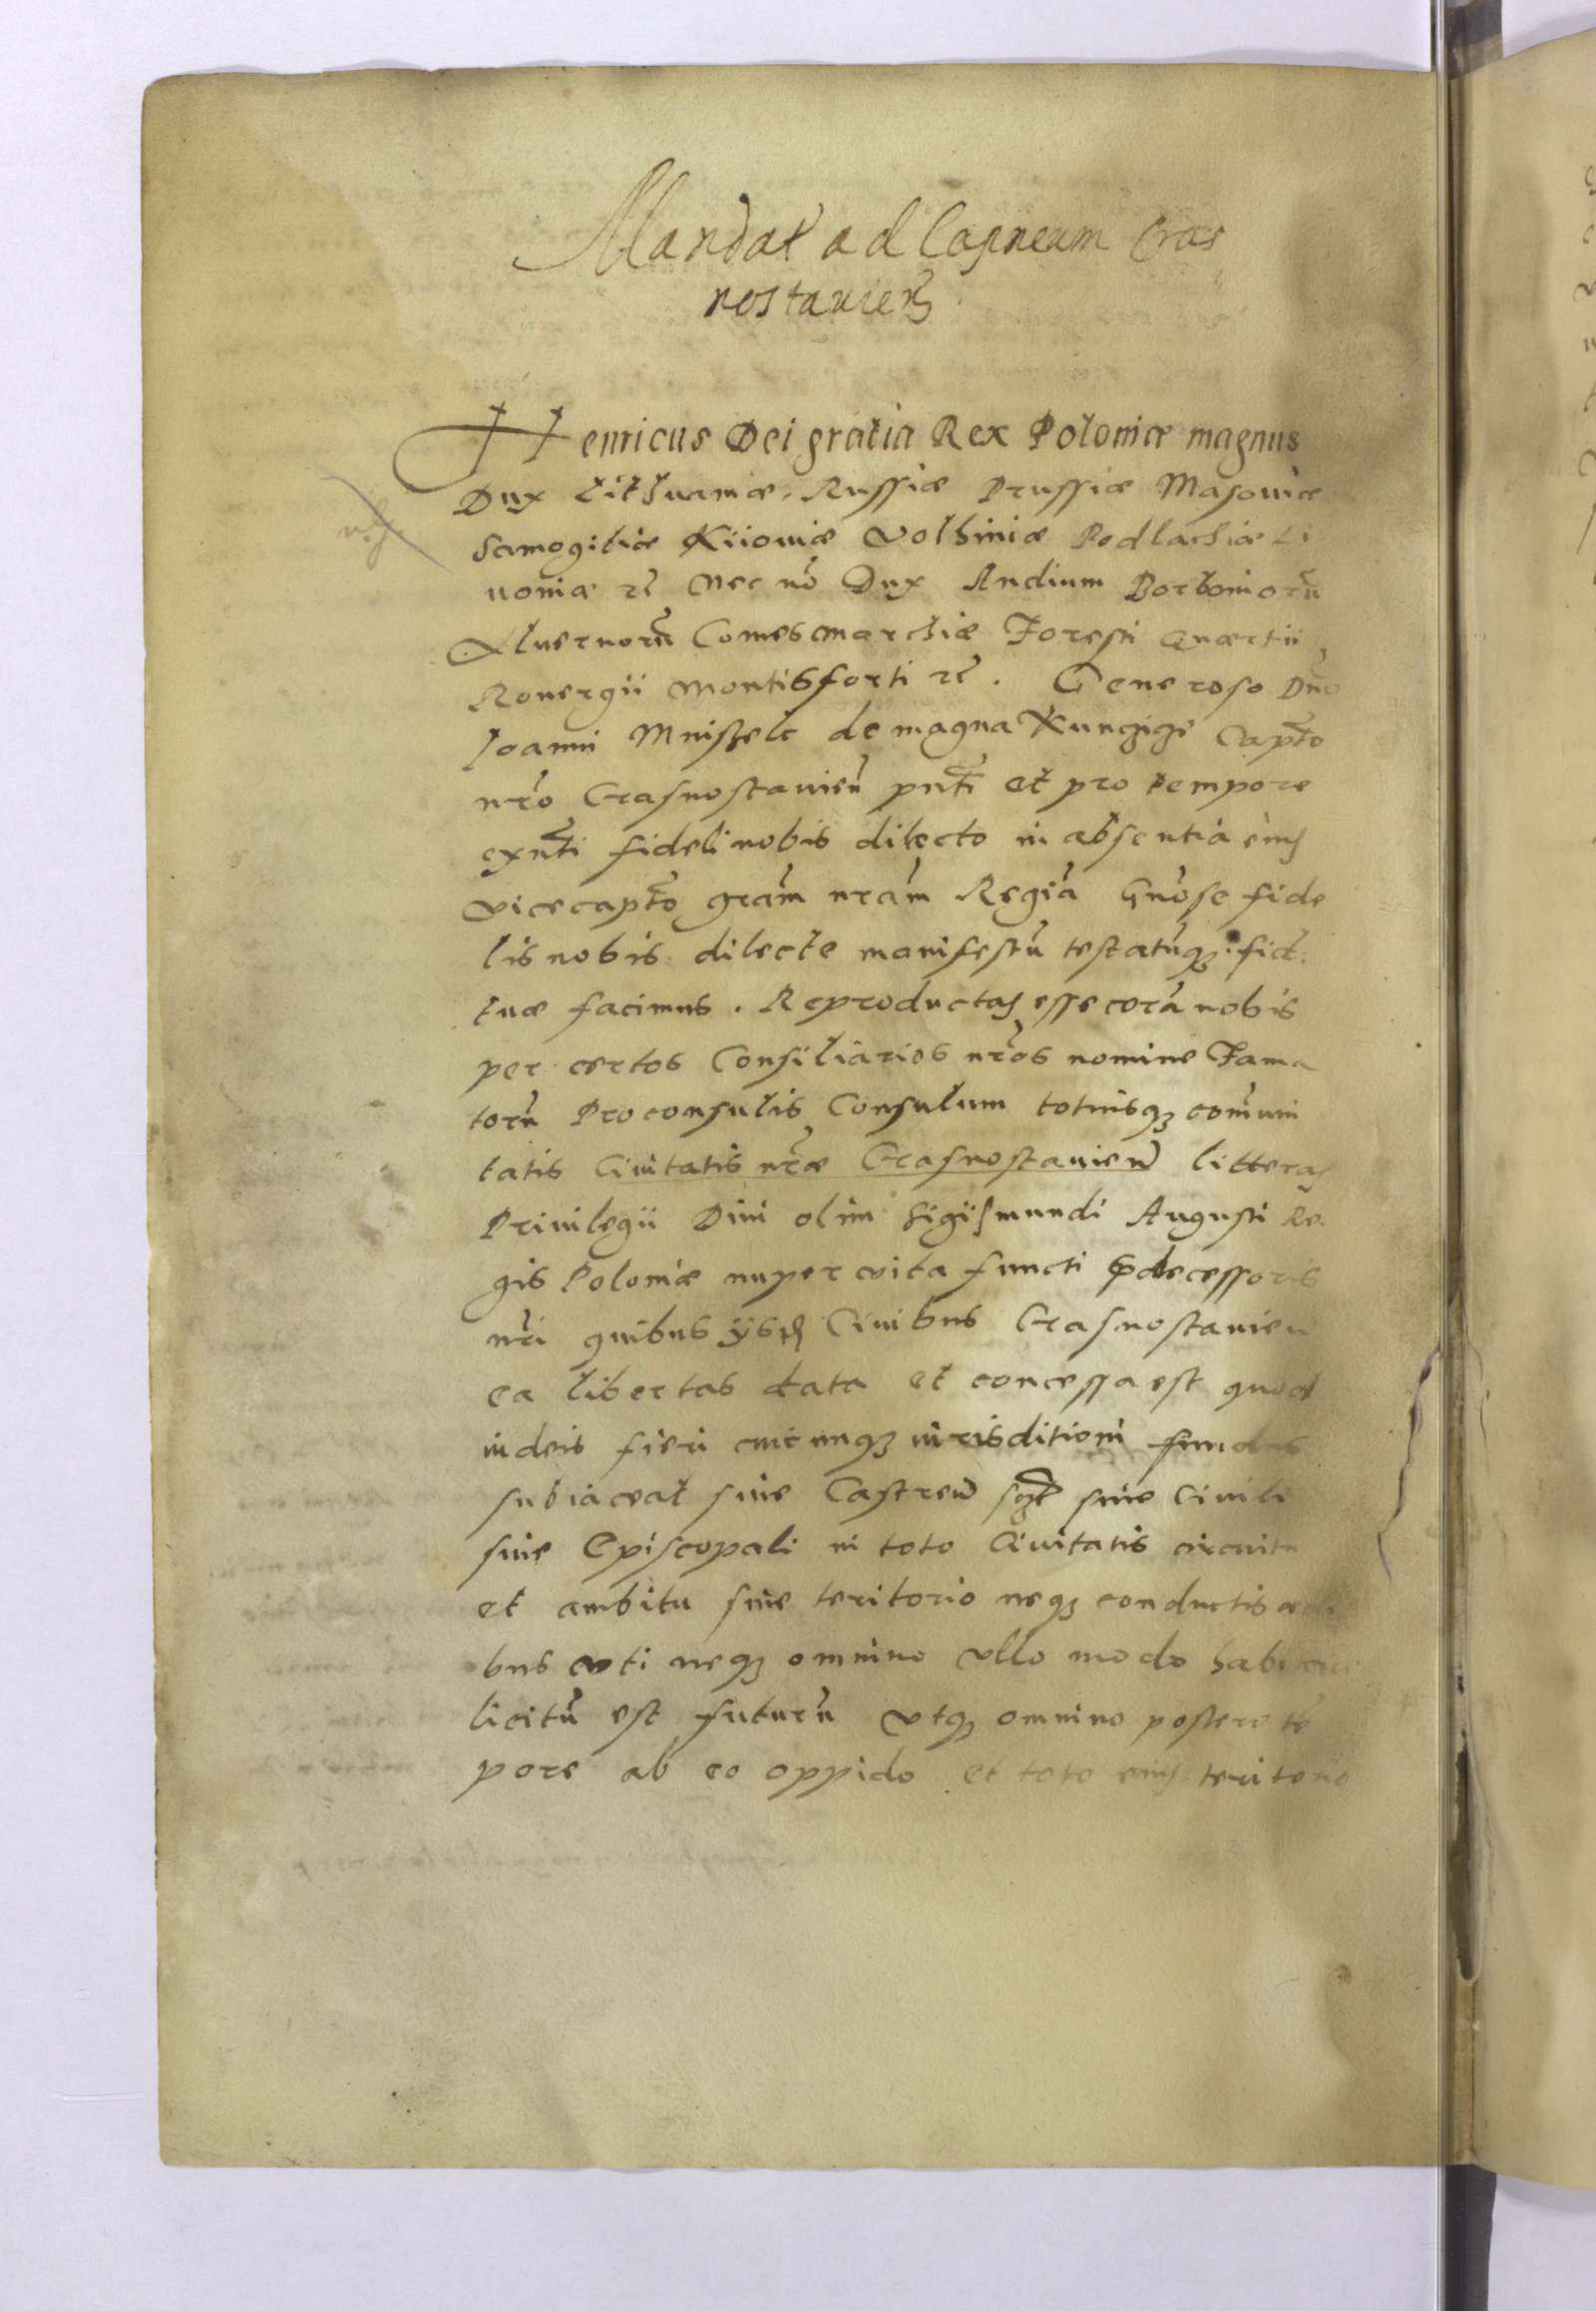 Mandat ad Capneum Cras
nostavień
Henricus Dei gratia Rex Poloniæ magnus
Dux Lithuaniæ, Russiæ Prussiæ Masoviæ
Samogitiæ Kiiouiæ Volhiniæ Podlachiæ Li
uoniæ ꝛc̃ Nec nõ Dux Andium Borboniorũ
Aluernorũ Comes Marchiæ Foresti Quærtii
Rouergii Montisforti ꝛc̃. Generoso Dno
Joanni Mnisʒek de magna Kunczicze Capto
nr̃o Crasnostauień pnti et pro tempore
exñti fideli nobis dilecto in absentia eius
vicecapto grãm nrãm Regiã Gnõse fide
lis nobis dilecte manifestũ testatũqꝫ fid:
tuæ facimus. Reproductas esse corã nobis
per certos Consiliarios nrõs nomine Fama
torũ Proconsulis Consulum totiusqꝫ comũni
tatis Ciuitatis nræ Crasnostauień litteras
Priuilegii Diui olim Sigismundi Augusti Re
gis Poloniæ nuper vita functi p̃decessoris
nri quibus ijsdꝫ Ciuibus Crasnostauień
ea libertas data et concessa est quod
iudeis fieri cuicunqꝫ iurisditioni fundus
subiaceat siue Castreń siue Ciuili
siue Episcopali in toto Ciuitatis circuitu
et ambitu siue teritorio neqꝫ conductis ædi
bus vti neqꝫ omnino vllo modo habitare
licitũ est futurũ vtqꝫ omnino postero tẽ
pore ab eo oppido et toto eius teritorio